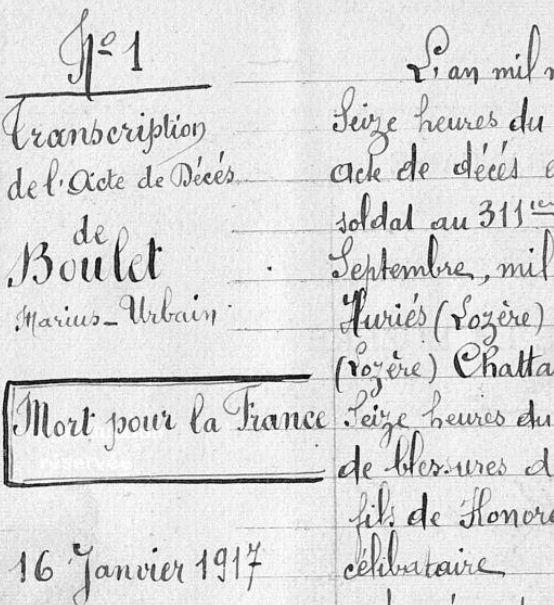 Nº 1
Transcription
de l'Acte de Décés
de
Boulet
Marius-Urbain
Mort pour la France
16 Janvier 1917
L'an mil
Seize heures du
acte de décés
soldat au 311ième
Septembre, mil
Huriés (Lozère)
(Lozère) Chatta
Seize heures du
de blessures d
fils de Honoré
célibataire